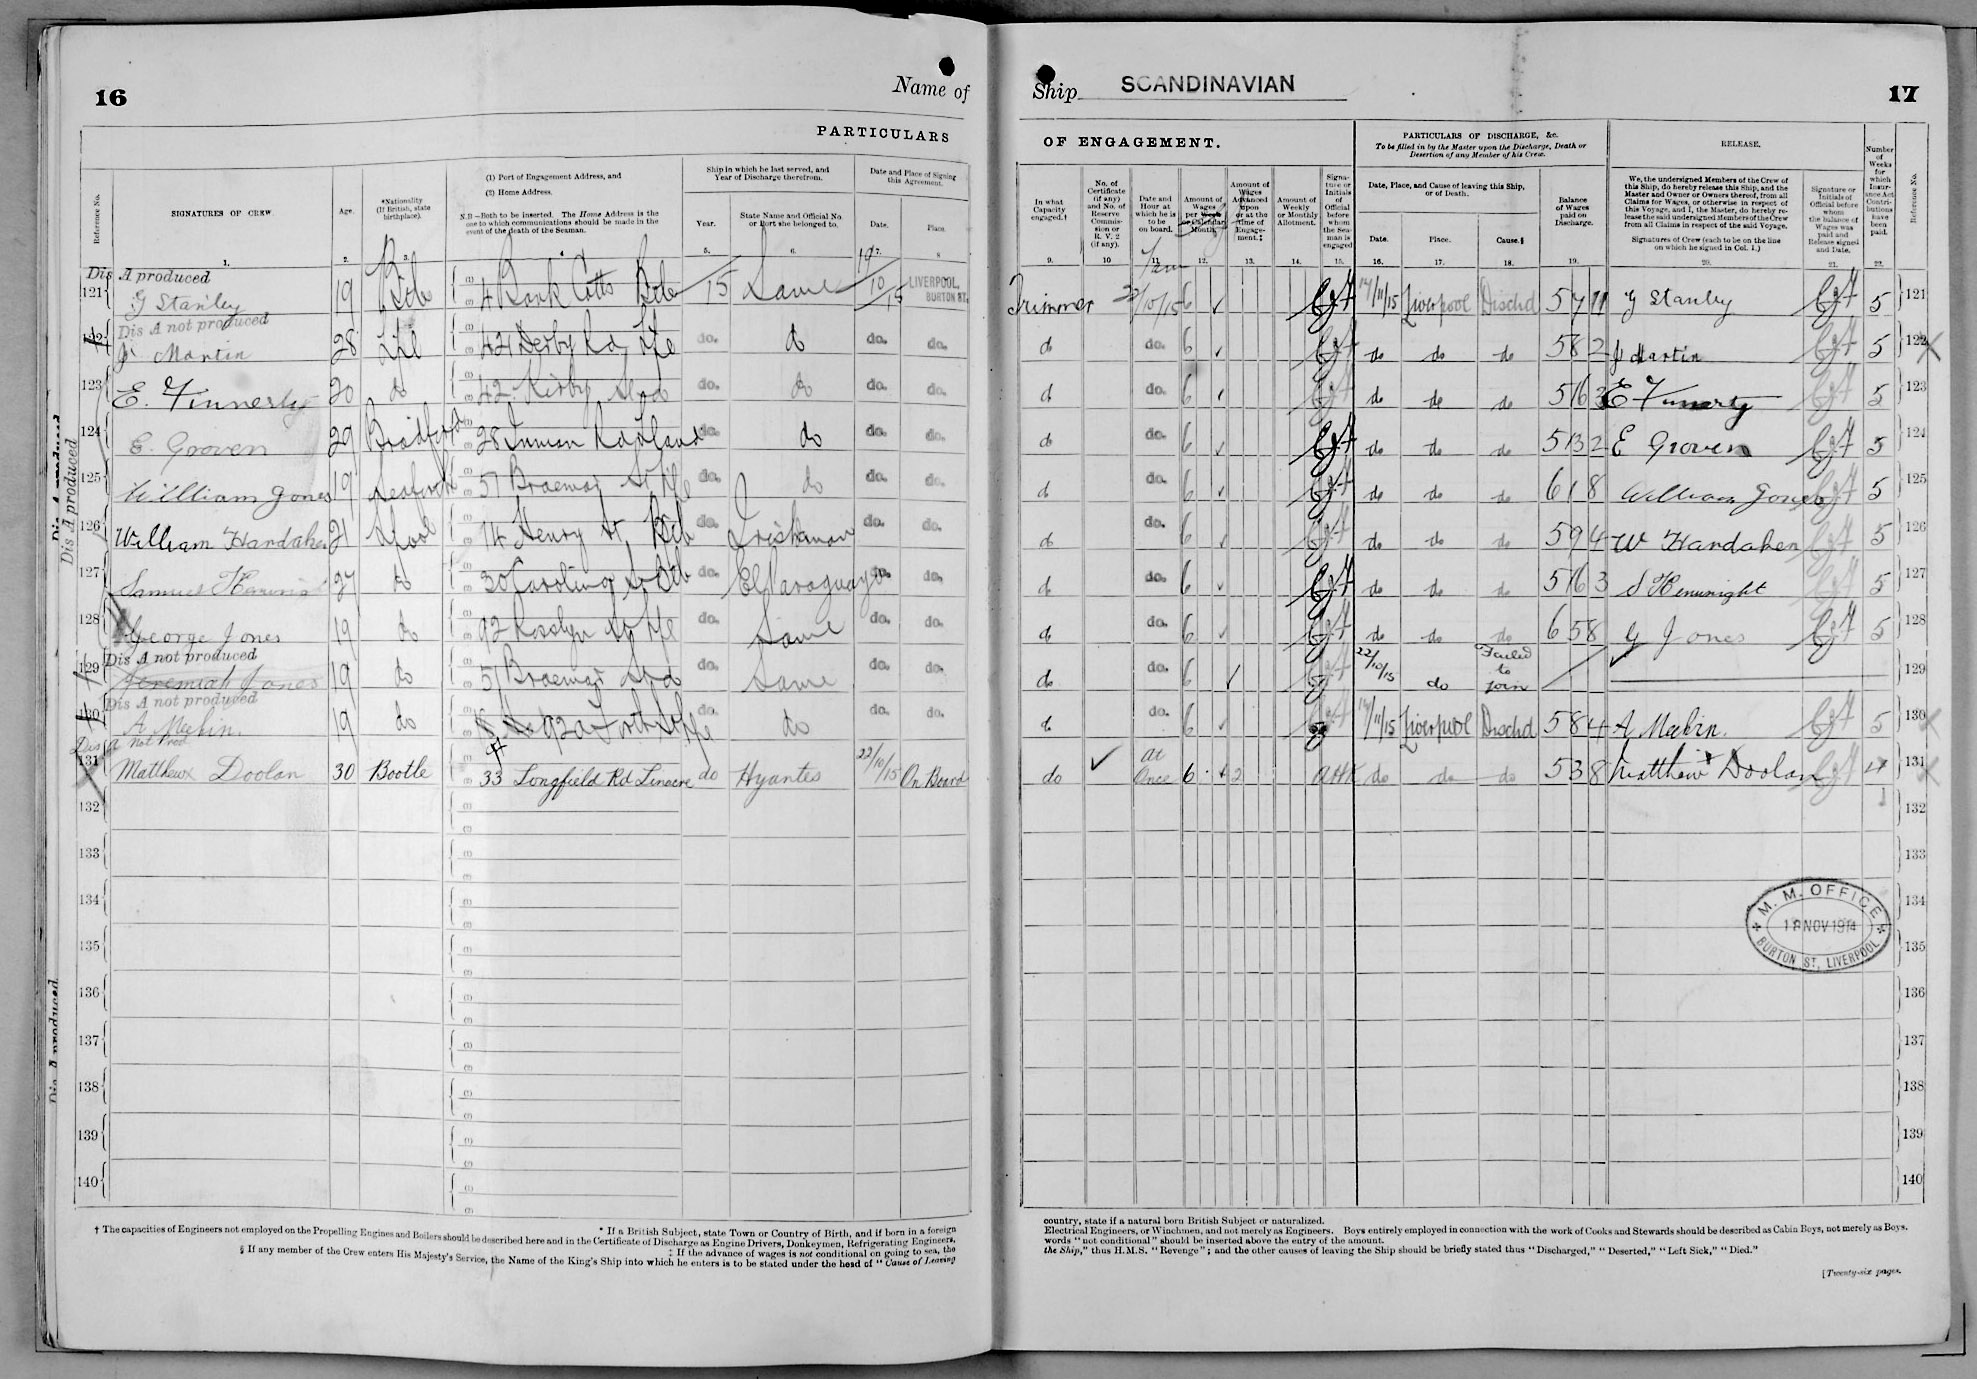 16
Name of
PARTICULARS
Reference No.
SIGNATURES OF CREW.
Age.
*Nationality
(If British, state
birthplace).
(1) Port of Engagement Address, and
(2) Home Address.
N.B—Both to be inserted. The Home Address is the
one to which communications should be made in the
event of the death of the Seaman.
Ship in which he last served, and
Year of Discharge therefrom.
Year.
State Name and Official No.
or Port she belonged to.
Date and Place of Signing
this Agreement.
Date.
Place.
1. 2. 3. 4. 5. 6. 7. 8.
Dis A produced
121 G Stanley 19 Btle 4 Bank Cotts Btle 15 Same 19/10/15 LIVERPOOL, BURTON ST.
Dis A not produced
122 J Martin 28 Lpl 42 Derby Rd Lpl do. do do. do.
123 E. Finnerty 20 do 42 Kirby St do do. do do. do.
124 E. Groven 29 Bradford 28 Inman Rd do. do do. do.
125 William Jones 19 Seaforth 51 Braemar St Lpl do. do do. do.
126 William Hardaker 21 Lpool 14 Henry St Btle do. Irishman do. do.
127 Samuel 27 do 30 Caroline St Btle do. El Paraguayo do. do.
128 George Jones 19 do 92 Rosslyn St Lpl do. Same do. do.
Dis A not produced
129 Jeremiah Jones 19 do 51 Braemar St do do. Same do. do.
Dis A not produced
130 A Meehin. 19 do 92a do. do do. do.
Dis A not prod
131 Matthew Doolan 30 Bootle 33 Longfield Rd Linacre do Hyantes 22/10/15 On Board
132
133
134
135
136
137
138
139
140
Dis A produced
Dis A produced
Dis A produced
† The capacities of Engineers not employed on the Propelling Engines and Boilers should be described here and in the Certificate of Discharge as Engine Drivers, Donkeymen, Refrigerating Engineers,
* If a British Subject, state Town or Country of Birth, and if born in a foreign
‡ If the advance of wages is not conditional on going to sea, the
§ If any member of the Crew enters His Majesty's Service, the Name of the King's Ship into which he enters is to be stated under the head of "Cause of Leaving
Ship SCANDINAVIAN
17
OF ENGAGEMENT.
PARTICULARS OF DISCHARGE, &c.
To be filled in by the Master upon the Discharge, Death or
Desertion of any Member of his Crew.
RELEASE.
In what
Capacity
engaged.†
No. of
Certificate
(if any)
and No. of
Reserve
Commis-
sion or
R. V. 2
(if any).
Date and
Hour at
which he is
to be
on board.
Amount of
Wages
per Week
or Calendar
Month.
Amount of
Wages
Advanced
upon
or at the
time of
Engage-
ment.‡
Amount of
Weekly
or Monthly
Allotment.
Signa-
ture or
Initials
of
Official
before
whom
the Sea-
man is
engaged
Date, Place, and Cause of leaving this Ship,
or of Death.
Date.
Place.
Cause.§
Balance
of Wages
paid on
Discharge.
We, the undersigned Members of the Crew of
this Ship, do hereby release this Ship, and the
Master and Owner or Owners thereof, from all
Claims for Wages, or otherwise in respect of
this Voyage, and I, the Master, do hereby re-
lease the said undersigned Members of the Crew
from all Claims in respect of the said Voyage.
Signatures of Crew (each to be on the line
on which he signed in Col. 1.)
Signature or
Initials of
Official before
whom
the balance of
Wages was
paid and
Release signed
and Date.
Number
of
Weeks
for
which
Insur-
ance Act
Contri-
butions
have
been
paid.
Reference No.
9. 10 11. 12. 13. 14. 15. 16. 17. 18. 19. 20. 21. 22.
7am
Trimmer 22/10/15 6 14/11/15 Liverpool Dischd 5 7 11 G Stanley 5 121
do do. 6 do do do 5 8 2 J Martin 5 122
do do. 6 do do do 5 16 3 E Finnerty 5 123
do do. 6 do do do 5 13 2 E Groven 5 124
do do. 6 do do do 6 1 8 William Jones 5 125
do do. 6 do do do 5 9 4 W Hardaker 5 126
do do. 6 do do do 5 16 3 S Henwright 5 127
do do. 6 do do do 6 5 8 G Jones 5 128
do do. 6 22/10/15 do Failed to join 129
do do. 6 14/11/15 Liverpool Dischd 5 8 4 A Meehin. 5 130
do At Once 6 2 do do do 5 3 8 Matthew Doolan 4 131
132
133
134
135
136
137
138
139
140
M. M. OFFICE
NOV 1914
BURTON ST, LIVERPOOL
country, state if a natural born British Subject or naturalized.
Electrical Engineers, or Winchmen, and not merely as Engineers. Boys entirely employed in connection with the work of Cooks and Stewards should be described as Cabin Boys, not merely as Boys.
words "not conditional" should be inserted above the entry of the amount.
the Ship," thus H.M.S. "Revenge"; and the other causes of leaving the Ship should be briefly stated thus "Discharged," "Deserted," "Left Sick," "Died."
[Twenty-six pages.